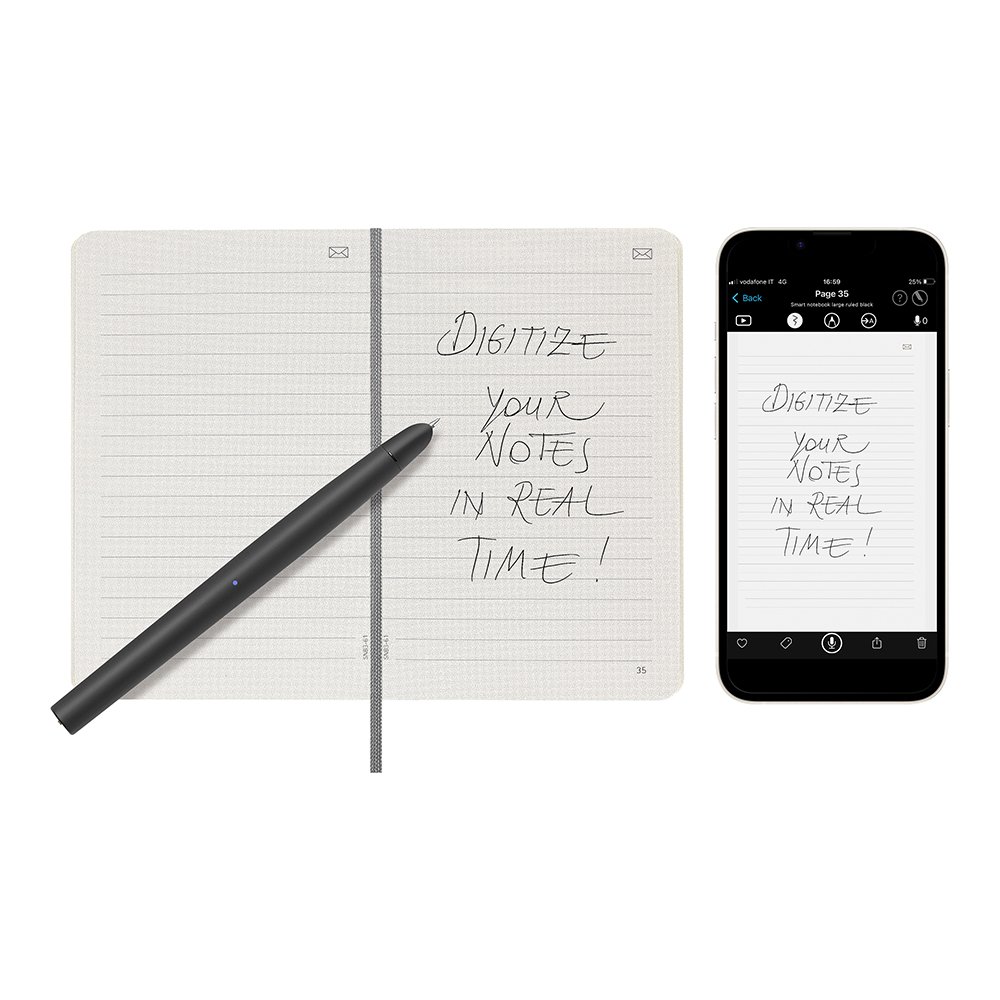 DIGITIZE
YOUR
NOTES
IN REAL
TIME!
SNB3-61
SNB3-61
35
vodafone IT 4G 16:59 25%
Back Page 35 ?
Smart notebook large ruled black
A 0
DIGITIZE
YOUR
NOTES
IN REAL
TIME!